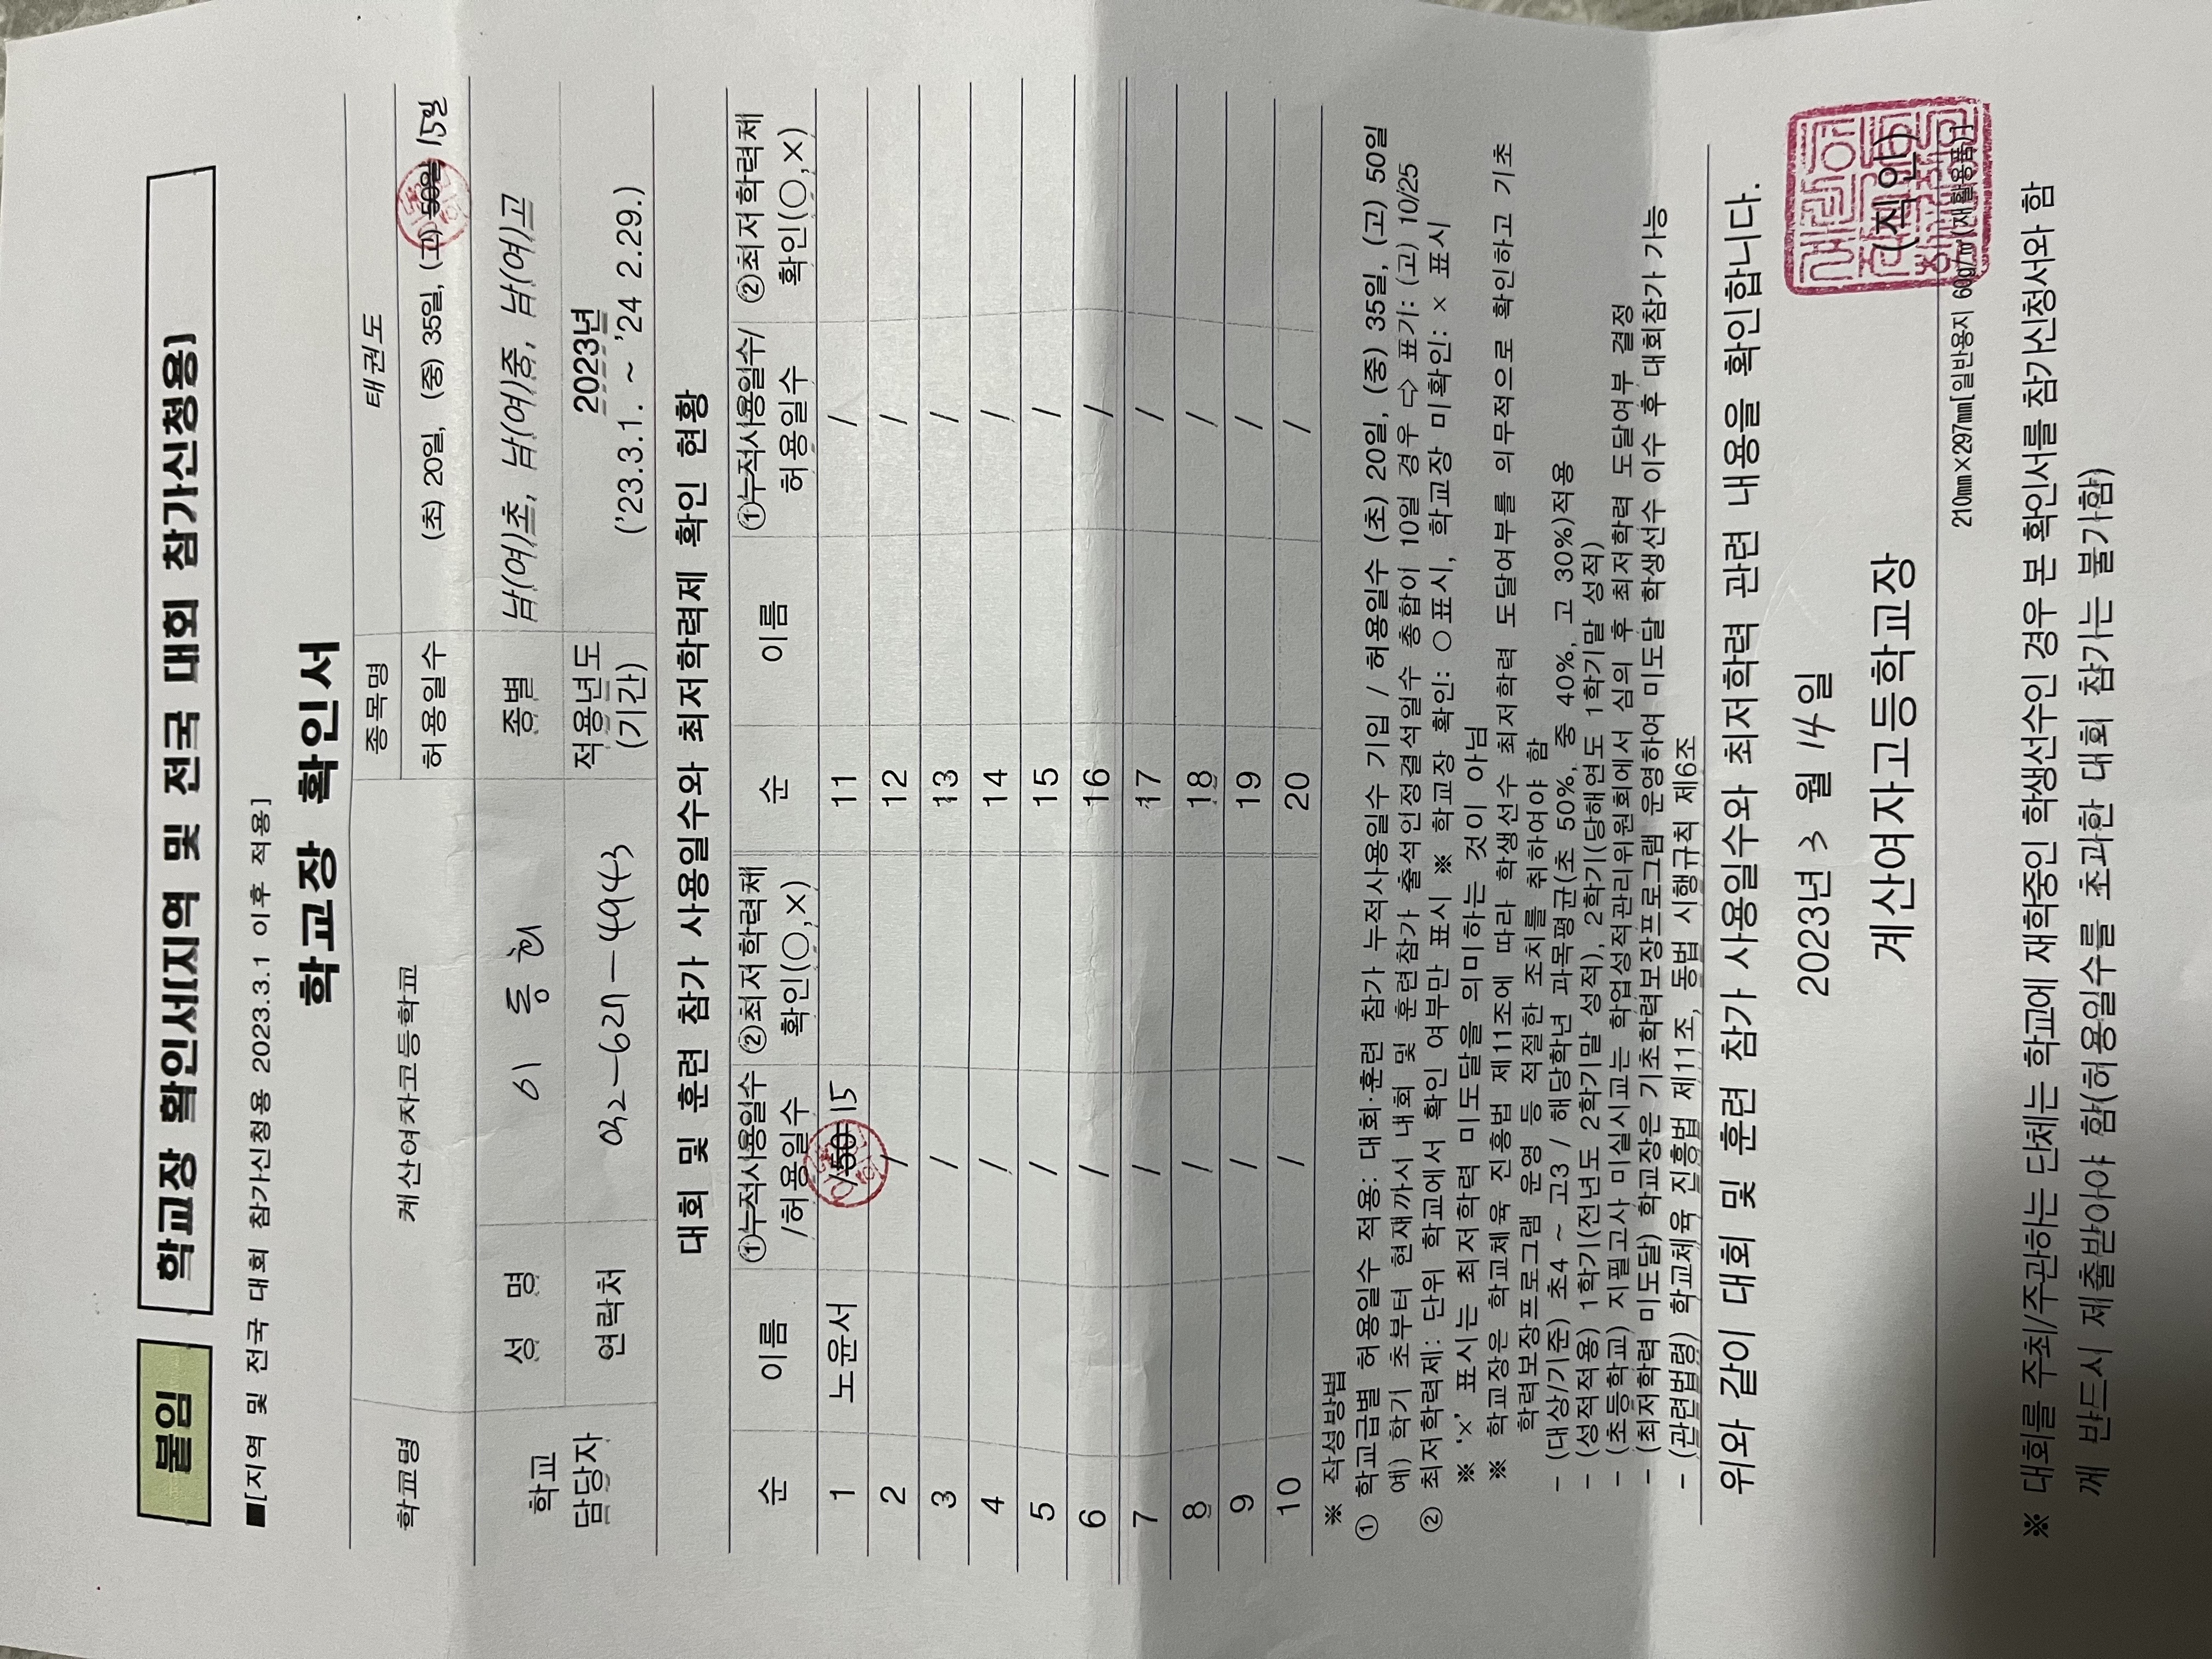 붙임
학교장 확인서[지역 및 전국 대회 참가신청용]
■[지역 및 전국 대회 참가신청용 2023.3.1 이후 적용]
학교장 확인서
학교명 계산여자고등학교 종목명 태권도
허용일수 (초) 20일, (중) 35일, (고) 50일 15일
학교 담당자 성 명 이 동 현 종별 남(여)초, 남(여)중, 남(여)고
연락처 032-627-4943 적용년도 (기간) 2023년 ('23.3.1. ~ '24 2.29.)
대회 및 훈련 참가 사용일수와 최저학력제 확인 현황
순 이름 ①누적사용일수/허용일수 ②최저학력제 확인(○,×) 순 이름 ①누적사용일수/허용일수 ②최저학력제 확인(○,×)
1 노윤서 /50 15 11 /
2 / 12 /
3 / 13 /
4 / 14 /
5 / 15 /
6 / 16 /
7 / 17 /
8 / 18 /
9 / 19 /
10 / 20 /
※ 작성방법
① 학교급별 허용일수 적용: 대회·훈련 참가 누적사용일수 기입 / 허용일수 (초) 20일, (중) 35일, (고) 50일
예) 학기 초부터 현재까지 대회 및 훈련참가 출석인정결석일수 총합이 10일 경우 ⇨ 표기: (고) 10/25
② 최저학력제: 단위 학교에서 확인 여부만 표시 ※ 학교장 확인: ○ 표시, 학교장 미확인: × 표시
※ '×' 표시는 최저학력 미도달을 의미하는 것이 아님
※ 학교장은 학교체육 진흥법 제11조에 따라 학생선수 최저학력 도달여부를 의무적으로 확인하고 기초
학력보장프로그램 운영 등 적절한 조치를 취하여야 함
- (대상/기준) 초4 ~ 고3 / 해당학년 과목평균(초 50%, 중 40%, 고 30%)적용
- (성적적용) 1학기(전년도 2학기말 성적), 2학기(당해연도 1학기말 성적)
- (초등학교) 지필고사 미실시교는 학업성적관리위원회에서 심의 후 최저학력 도달여부 결정
- (최저학력 미도달) 학교장은 기초학력보장프로그램 운영하여 미도달 학생선수 이수 후 대회참가 가능
- (관련법령) 학교체육 진흥법 제11조, 동법 시행규칙 제6조
위와 같이 대회 및 훈련 참가 사용일수와 최저학력 관련 내용을 확인합니다.
2023년 3 월 14 일
계산여자고등학교장 (직인)
210㎜×297㎜[일반용지 60g/㎡(재활용품)]
※ 대회를 주최/주관하는 단체는 학교에 재학중인 학생선수인 경우 본 확인서를 참가신청서와 함
께 반드시 제출받아야 함(허용일수를 초과한 대회 참가는 불가함)